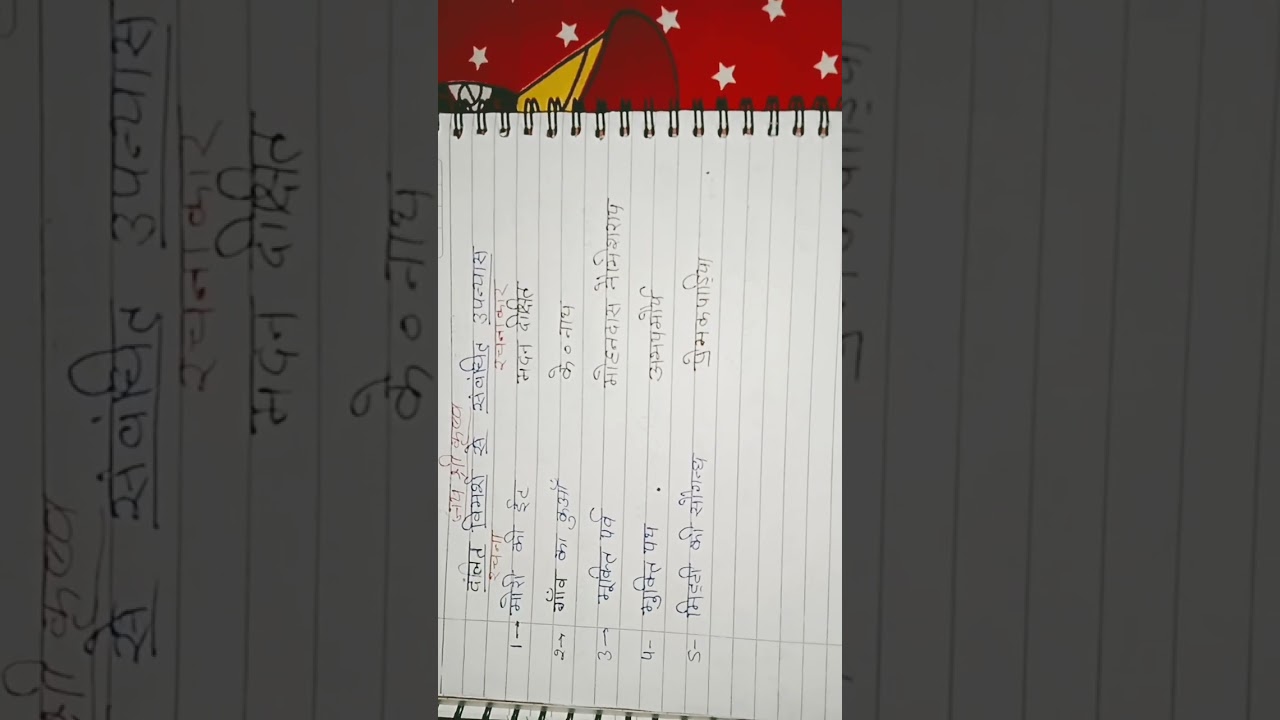 जय श्री कृष्ण
दलित विमर्श से संबंधित उपन्यास
रचना रचनाकार
1→ मोरी की ईंट मदन दीक्षित
2→ गाँव का कुआँ के० नाथ
3→ मुक्ति पर्व मोहनदास नैमिशराय
4- मुक्ति पथ अभयमौर्य
5- मिट्टी की सौगन्ध प्रेमकपाड़िया